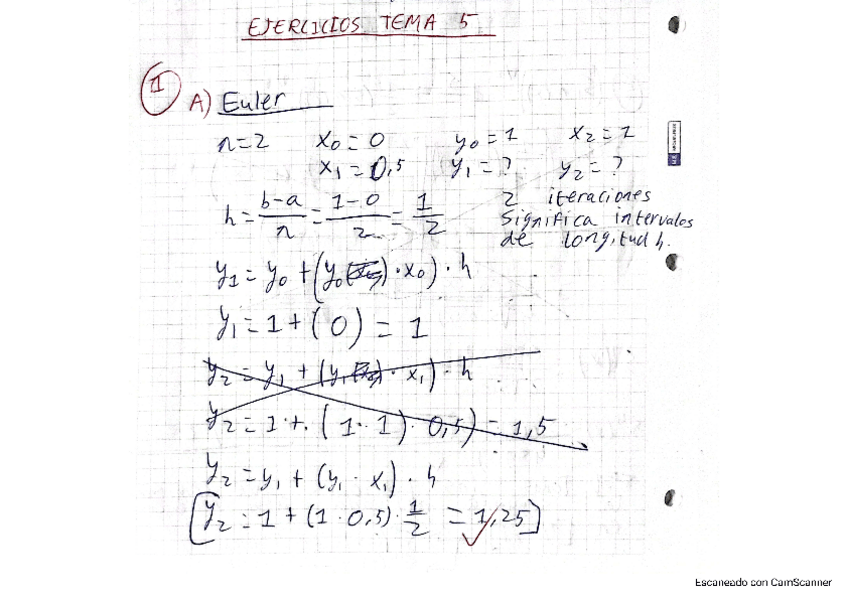 EJERCICIOS TEMA 5
1 A) Euler
n=2 x₀=0 y₀=1 x₂=1
x₁=0,5 y₁=? y₂=?
h = (b-a)/n = (1-0)/2 = 1/2
2 iteraciones
significa intervalos
de longitud h.
y₁ = y₀ + (y₀ · x₀) · h
y₁ = 1 + (0) = 1
y₂ = y₁ + (y₁ · x₁) · h
y₂ = 1 + (1 · 1) · 0,5) = 1,5
y₂ = y₁ + (y₁ · x₁) · h
[y₂ = 1 + (1 · 0,5) · 1/2 = 1,25]
Escaneado con CamScanner